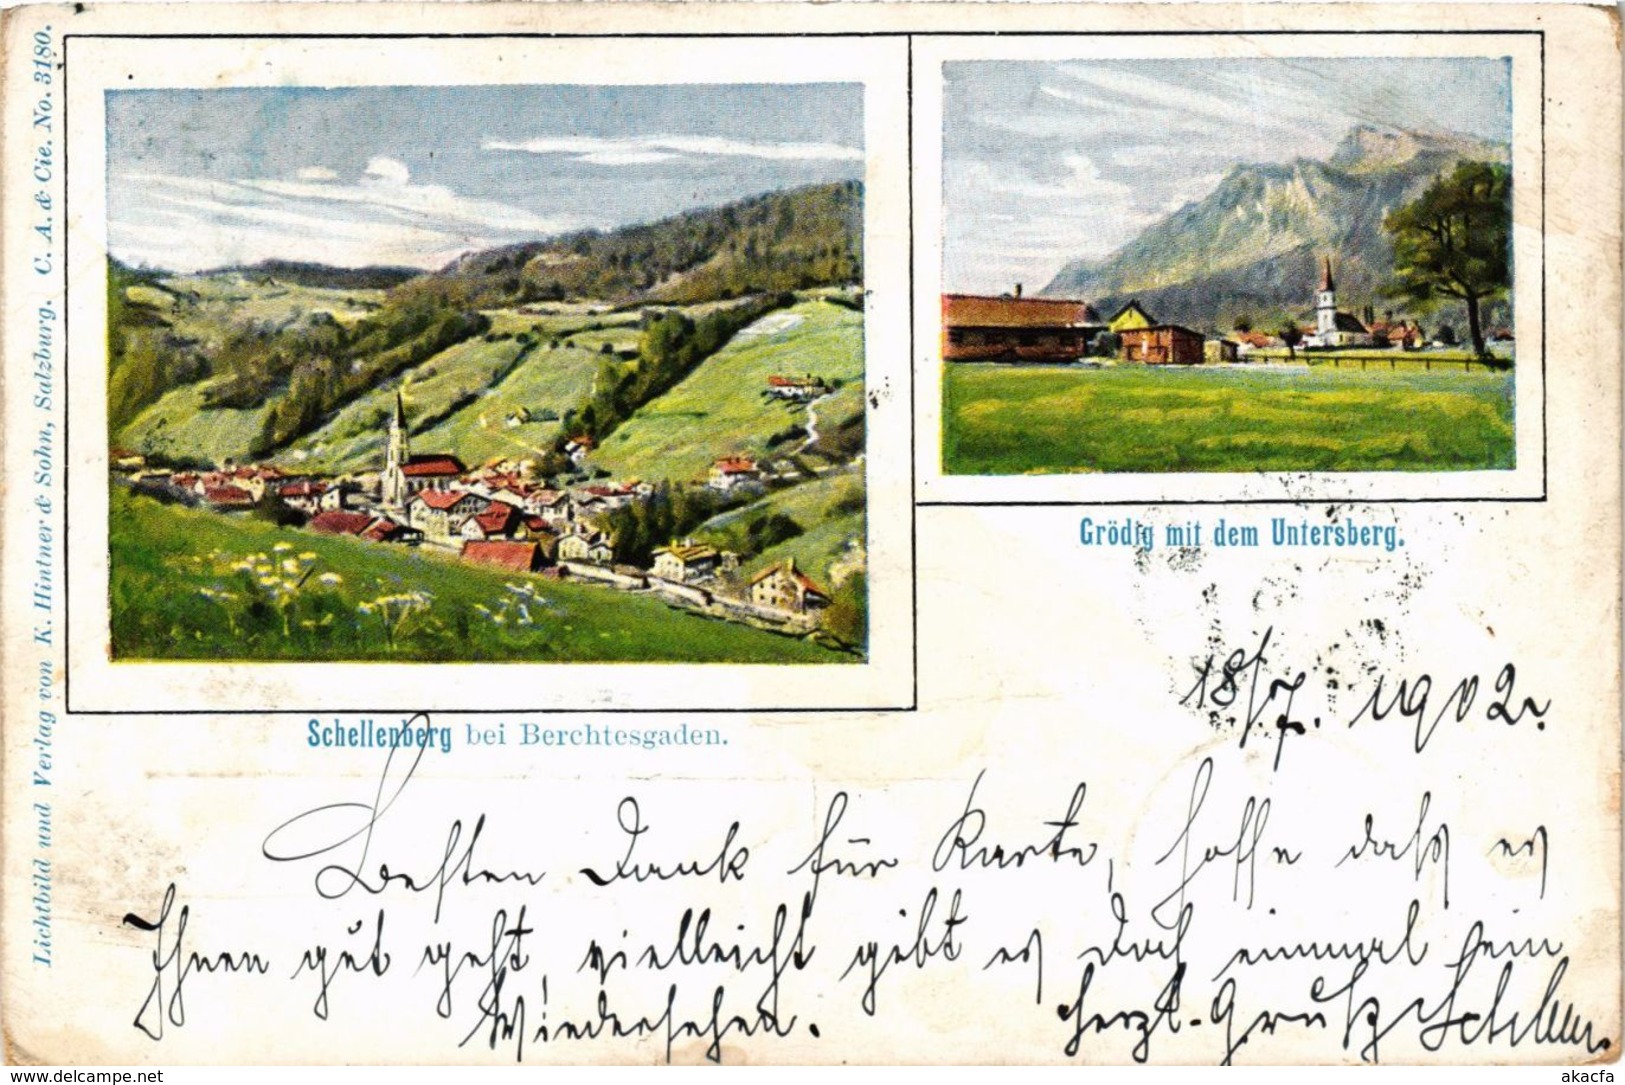 Lichtbild und Verlag von K. Hintner & Sohn, Salzburg. C. A. & Cie. No. 3180.
Grödig mit dem Untersberg.
Schellenberg bei Berchtesgaden.
18/7. 1902.
Besten Dank für Karte, hoffe daß es
Ihnen gut geht, vielleicht gibt es doch einmal ein
Wiedersehen. Herzl. Gruß
delcampe.net
akacfa